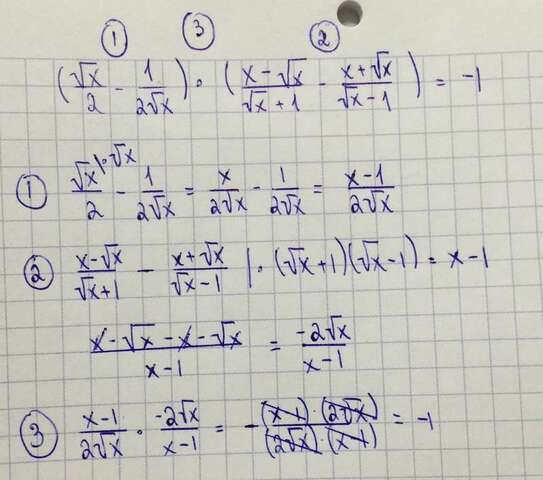 ① ③ ②
(√x/2 - 1/(2√x)) · ((x-√x)/(√x+1) - (x+√x)/(√x-1)) = -1
① √x/2 |·√x - 1/(2√x) = x/(2√x) - 1/(2√x) = (x-1)/(2√x)
② (x-√x)/(√x+1) - (x+√x)/(√x-1) |·(√x+1)(√x-1) = x-1
(x-√x-x-√x)/(x-1) = (-2√x)/(x-1)
③ (x-1)/(2√x) · (-2√x)/(x-1) = -((x-1)·(2√x))/((2√x)·(x-1)) = -1